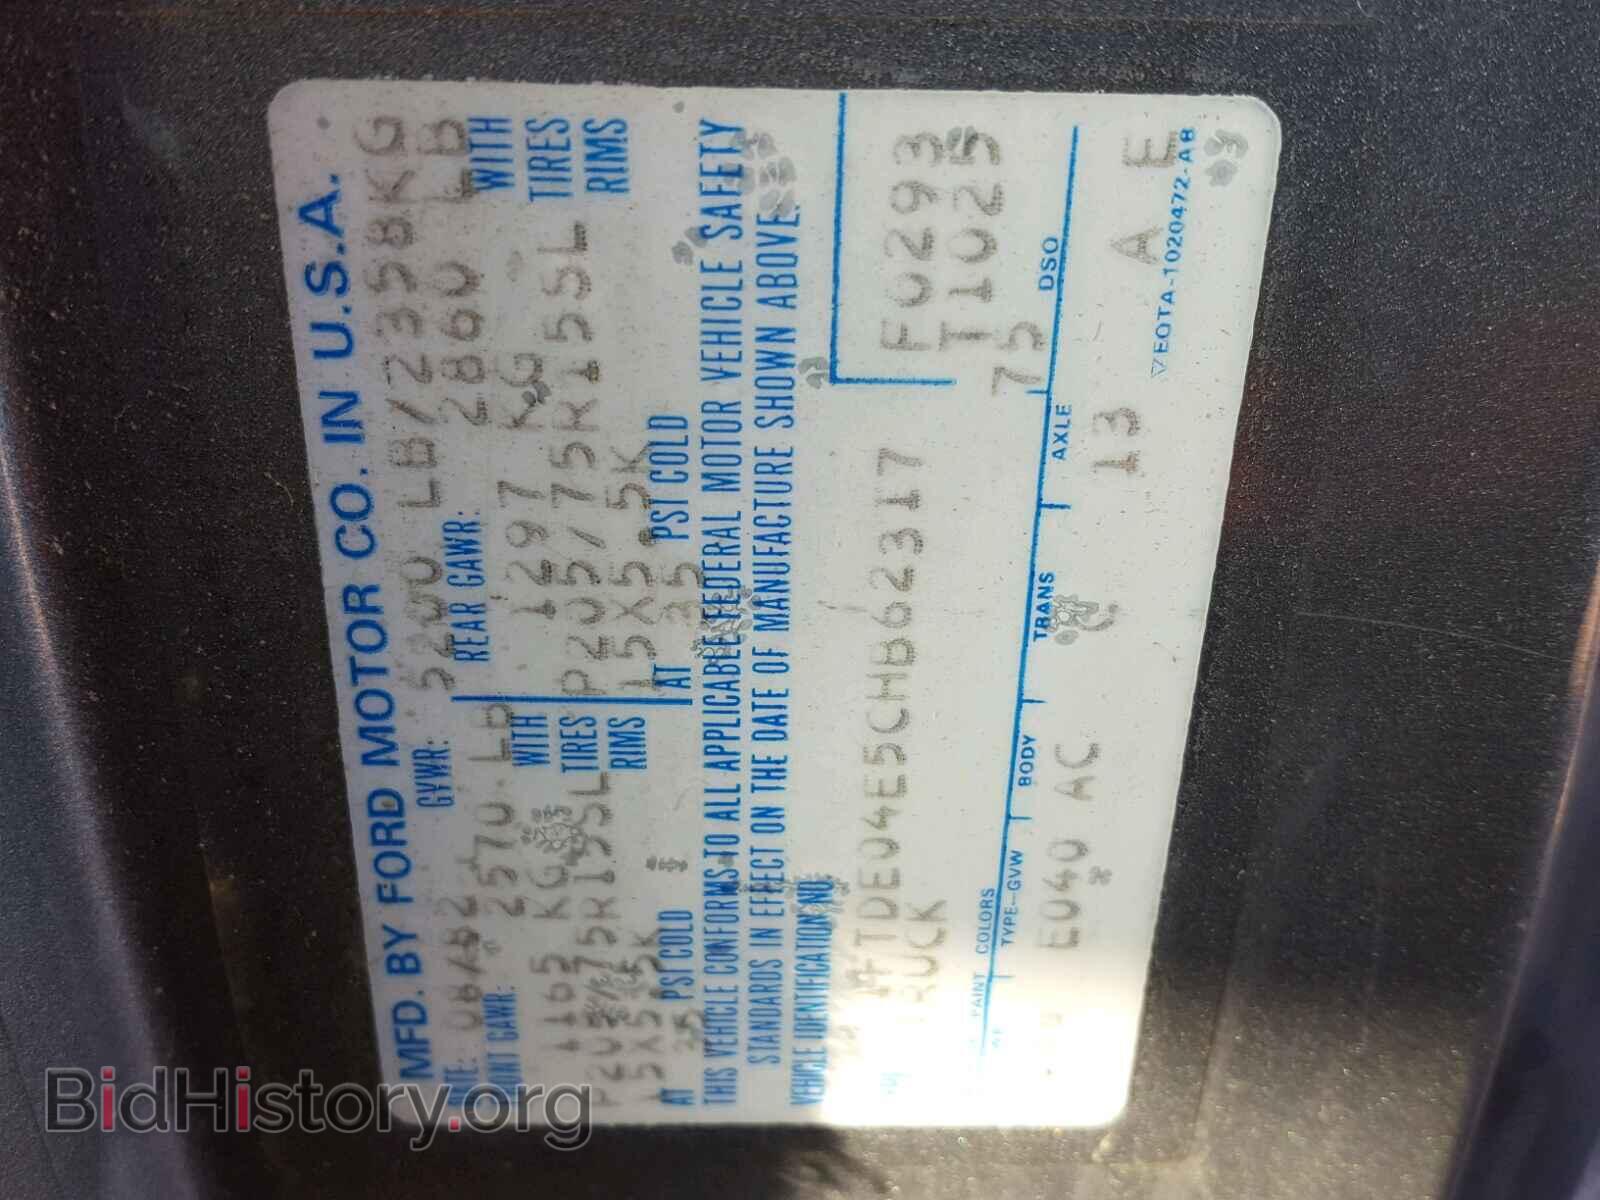 MFD. BY FORD MOTOR CO. IN U.S.A.
GVWR: 5200 LB/2358KG
2570 LB
REAR GAWR: 2860 LB
1165 KG WITH
1297 KG WITH
TIRES
P205/75R15SL TIRES
15X5.5K RIMS
15X5.5K RIMS
AT PSI COLD
AT 35 PSI COLD
THIS VEHICLE CONFORMS TO ALL APPLICABLE FEDERAL MOTOR VEHICLE SAFETY
STANDARDS IN EFFECT ON THE DATE OF MANUFACTURE SHOWN ABOVE.
VEHICLE IDENTIFICATION NO.
FTDE04E5CHB62317
F0293
TRUCK
T1025
75
PAINT COLORS
TYPE-GVW BODY TRANS AXLE DSO
E040 AC C 13 A E
▽EOTA-1020472-A8
BidHistory.org